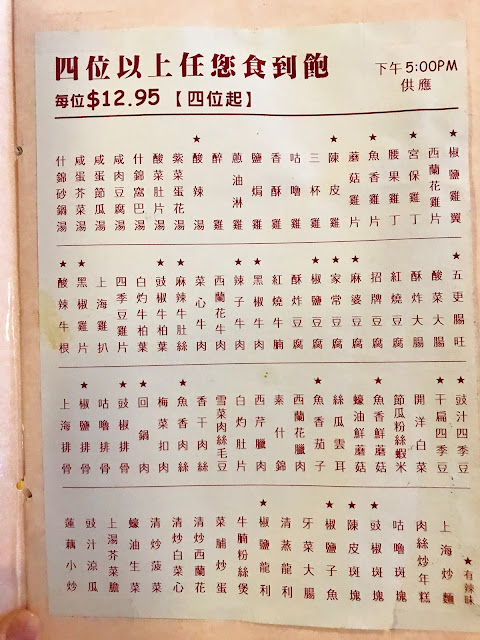 四位以上任您食到飽
每位$12.95 【四位起】
下午5:00PM
供應
★椒鹽雞翼
西蘭花雞片
★宮保雞丁
腰果雞丁
★魚香雞片
蘑菇雞片
★陳皮雞
三杯雞
咕嚕雞
香酥雞
鹽焗雞
蔥油淋雞
醉雞
★酸辣湯
紫菜蛋花湯
酸菜肚片湯
什錦窩巴湯
咸肉豆腐湯
咸蛋節瓜湯
咸蛋芥菜湯
什錦砂鍋湯
★五更腸旺
酸菜大腸
酥炸大腸
紅燒豆腐
招牌豆腐
★麻婆豆腐
★家常豆腐
★椒鹽豆腐
酥炸豆腐
紅燒牛腩
★黑椒牛肉
★辣子牛肉
西蘭花牛肉
菜心牛肉
★麻辣牛肚絲
★豉椒牛柏葉
白灼牛柏葉
四季豆雞片
上海雞扒
★黑椒雞片
★酸辣牛根
★豉汁四季豆
★干扁四季豆
開洋白菜
節瓜粉絲蝦米
★魚香鮮蘑菇
蠔油鮮蘑菇
絲瓜雲耳
★魚香茄子
西蘭花臘肉
素什錦
西芹臘肉
白灼肚片
雪菜肉絲毛豆
香干肉絲
★魚香肉絲
梅菜扣肉
★回鍋肉
★豉椒排骨
★咕嚕排骨
★椒鹽排骨
上海排骨
★有辣味
上海炒麵
肉絲炒年糕
咕嚕斑塊
★豉椒斑塊
★陳皮斑塊
★椒鹽子魚
牙菜大腸
清蒸龍利
★椒鹽龍利
牛腩粉絲煲
菜脯炒蛋
清炒西蘭花
清炒白菜心
清炒菠菜
蠔油生菜
上湯芥菜膽
豉汁涼瓜
蓮藕小炒